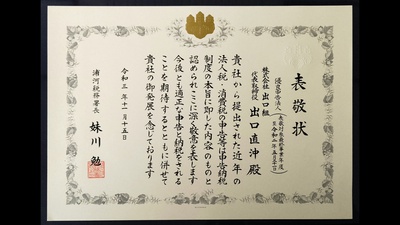 表敬状
優良申告法人
株式会社 出口組
代表取締役 出口直沖 殿
貴社から提出された近年の
法人税・消費税の申告等は申告納税
制度の本旨に即した内容のものと
認められここに深く敬意を表します
今後とも適正な申告と納税をされる
ことを期待するとともに併せて
貴社の御発展を念じております
令和三年十一月十五日
浦河税務署長
妹川 勉